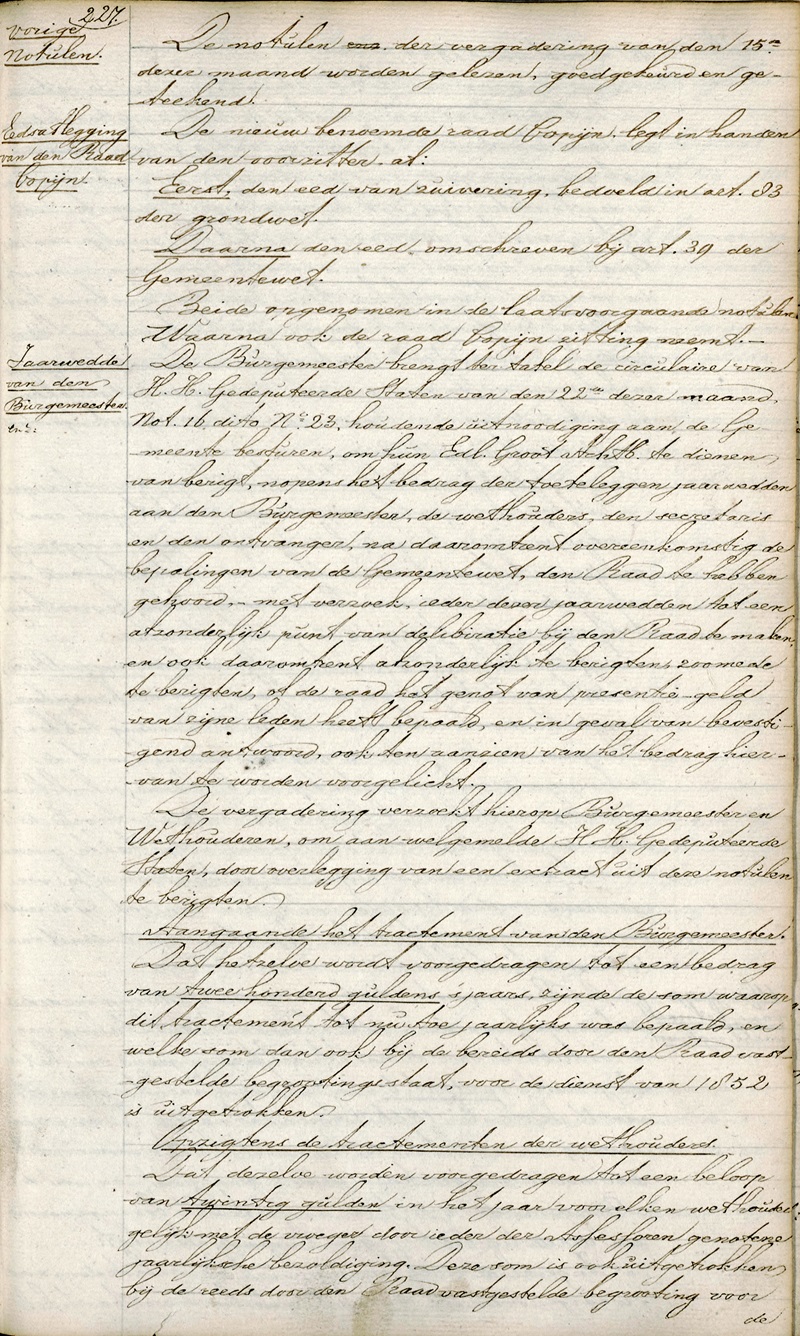 227.
Vorige
Notulen.
De notulen der vergadering van den 15en
dezer maand worden gelezen, goedgekeurd en ge-
teekend.
Eedsaflegging
van den Raad
Copijn.
De nieuw benoemde raad Copijn legt in handen
van den voorzitter af:
Eerst, den eed van zuivering, bedoeld in art. 83
der grondwet.
Daarna den eed, omschreven bij art. 39 der
Gemeentewet.
Beide opgenomen in de laatsvoorgaande notulen
Waarna ook de raad Copijn zitting neemt.—
Jaarwedde
van den
Burgemeester
De Burgemeester brengt ter tafel de circulaire van
H. H. Gedeputeerde Staten van den 22en dezer maand,
Not. 16 dito No. 23, houdende uitnoodiging aan de Ge
meente besturen, om hun Edl. Groot Achtb. te dienen
van berigt, nopens het bedrag der toeteleggen jaarwedden
aan den Burgemeester, de wethouders, den secretaris
en den ontvanger, na daaromtrent overeenkomstig de
bepalingen van de Gemeentewet, den Raad te hebben
gehoord,– met verzoek, ieder dezer jaarwedden tot een
afzonderlijk punt van delibiratie bij den Raad te maken,
en ook daaromtrent afzonderlijk te berigten, zoomede
te berigten, of de raad het genot van presentie-geld
van zijne leden heeft bepaald, en in geval van bevesti-
gend antwoord, ook ten aanzien van het bedrag hier-
van te worden voorgelicht.
De vergadering verzoekt hierop Burgemeester en
Wethouderen, om aan welgemelde H. H. Gedeputeerde
Staten, door overlegging van een extract uit deze notulen
te berigten.
Aangaande het tractement van den Burgemeester.
Dat hetzelve wordt voorgedragen tot een bedrag
van twee honderd guldens 'sjaars, zijnde de som waarop
dit tractement tot nu toe jaarlijks was bepaald, en
welke som dan ook bij de bereids door den Raad vast-
gestelde begrootings staat, voor de dienst van 1852
is uitgetrokken.
Opzigtens de tractementen der wethouders.
Dat dezelve worden voorgedragen tot een beloop
van twintig gulden in het jaar voor elken wethouder
gelijk met de vroeger door ieder der Assessoren genotene
jaarlijksche bezoldiging. Deze som is ook uitgetrokken
bij de reeds door den Raad vastgestelde begrooting voor
de